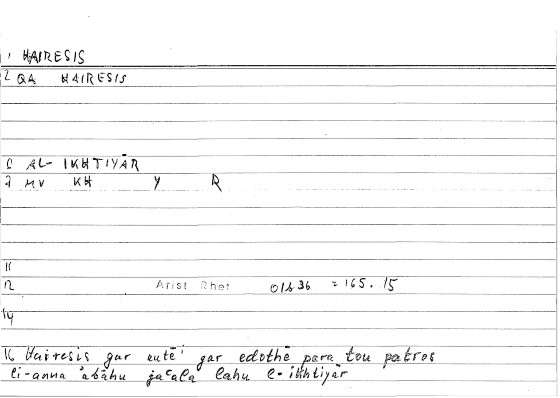 1 HAIRESIS
2 QA HAIRESIS
6 AL-IKHTIYĀR
7 MV KH Y R
11
12 Arist Rhet 01b36 = 165.15
14
16 Hairesis gar autē' gar edothē para tou patros
li-anna 'abāhu jaʿala lahu l-ikhtiyār